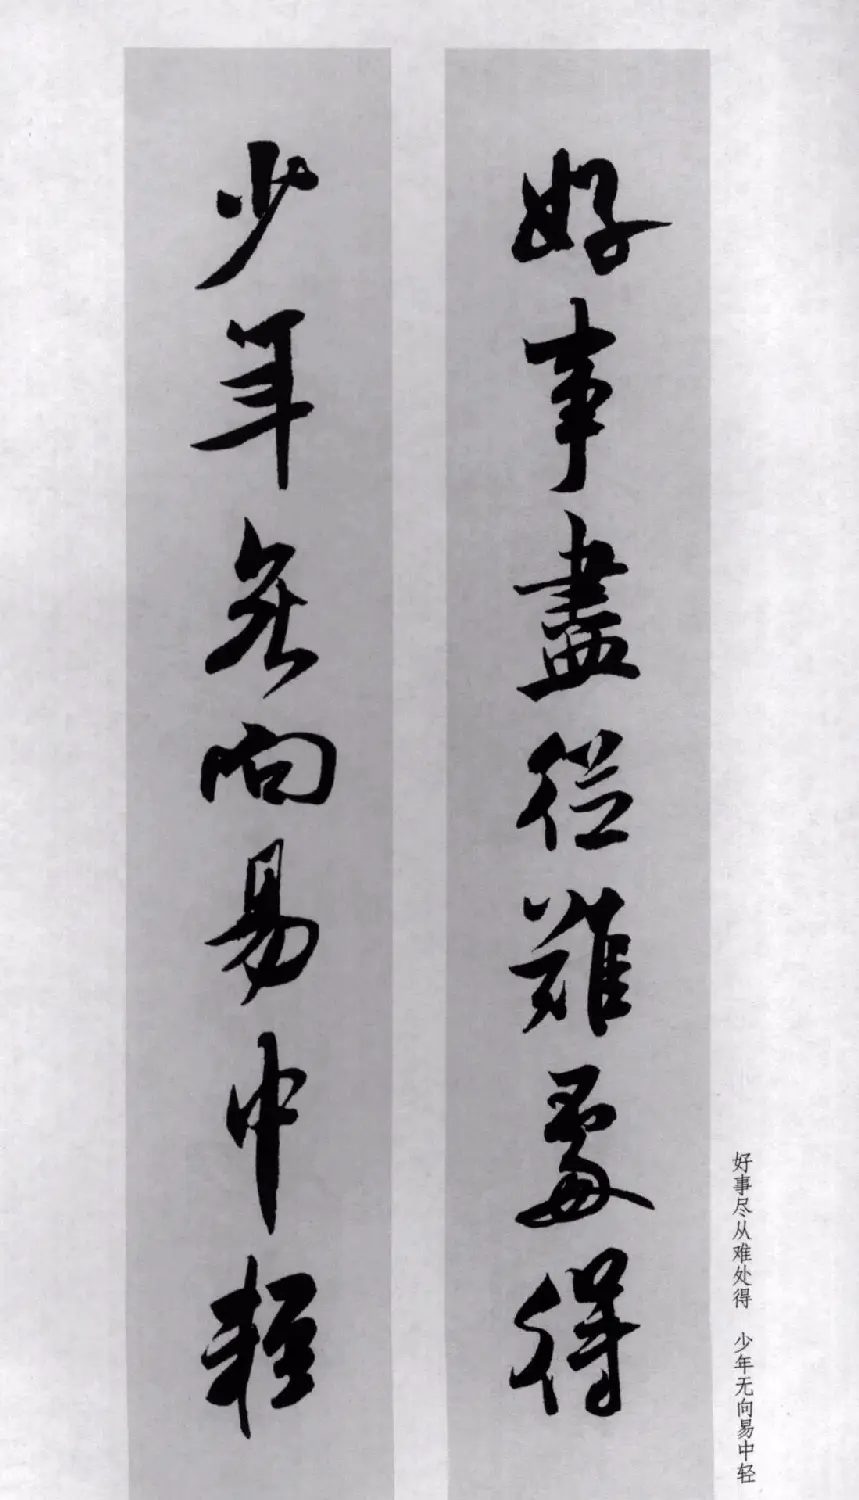 好事盡從難處得
少年無向易中輕
好事尽从难处得 少年无向易中轻